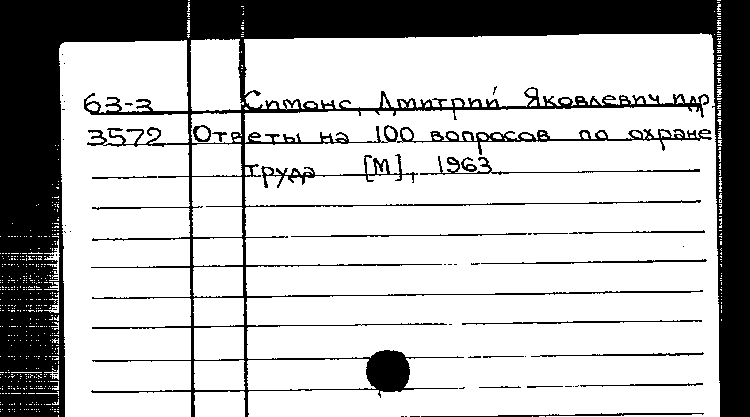 63-3 Симонс, Дмитрий Яковлевич и др.
3572 Ответы на 100 вопросов по охране
труда [М], 1963